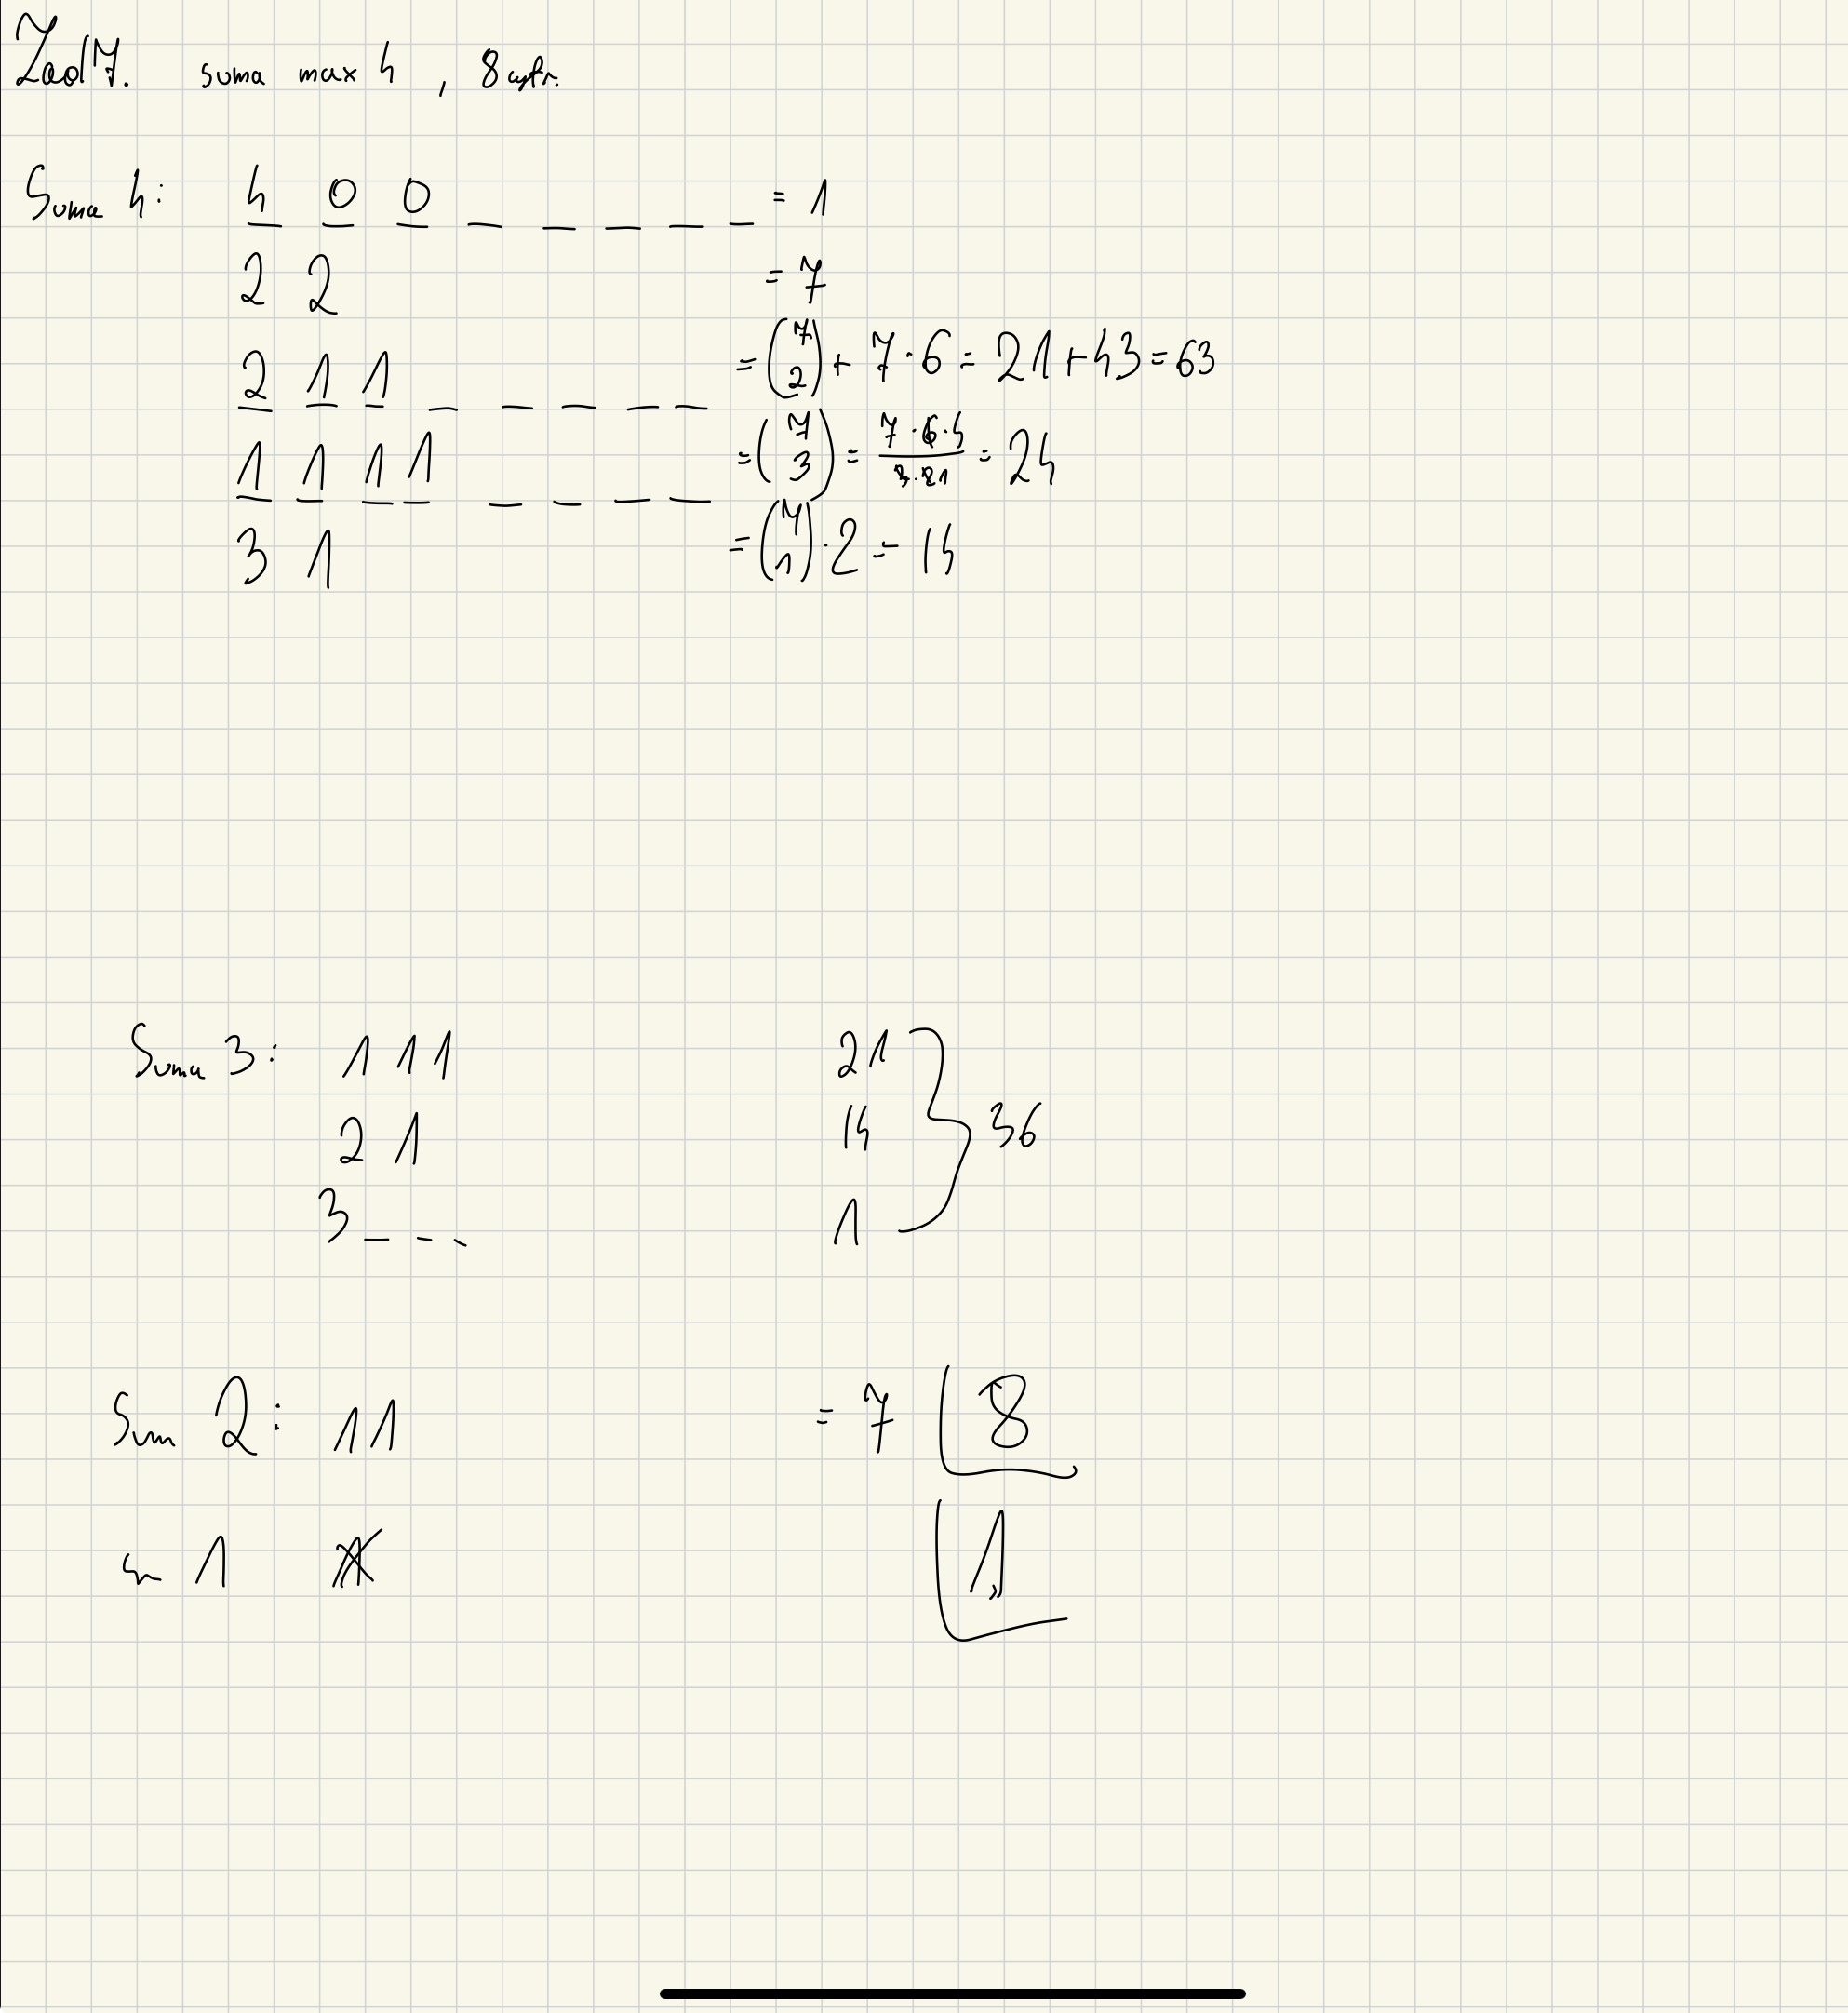 Zad 7. suma max 4, 8 cyfr.
Suma 4: 4 0 0 _ _ _ _ _ = 1
2 2 = 7
2 1 1 _ _ _ _ _ = (7 2) + 7·6 = 21+43 = 63
1 1 1 1 _ _ _ _ = (7 3) = 7·6·5 / 3·21 = 24
3 1 = (7 1)·2 = 14
Suma 3: 1 1 1 21
2 1 14 } 36
3 _ _ _ 1
Sum 2: 1 1 = 7 8
1 1